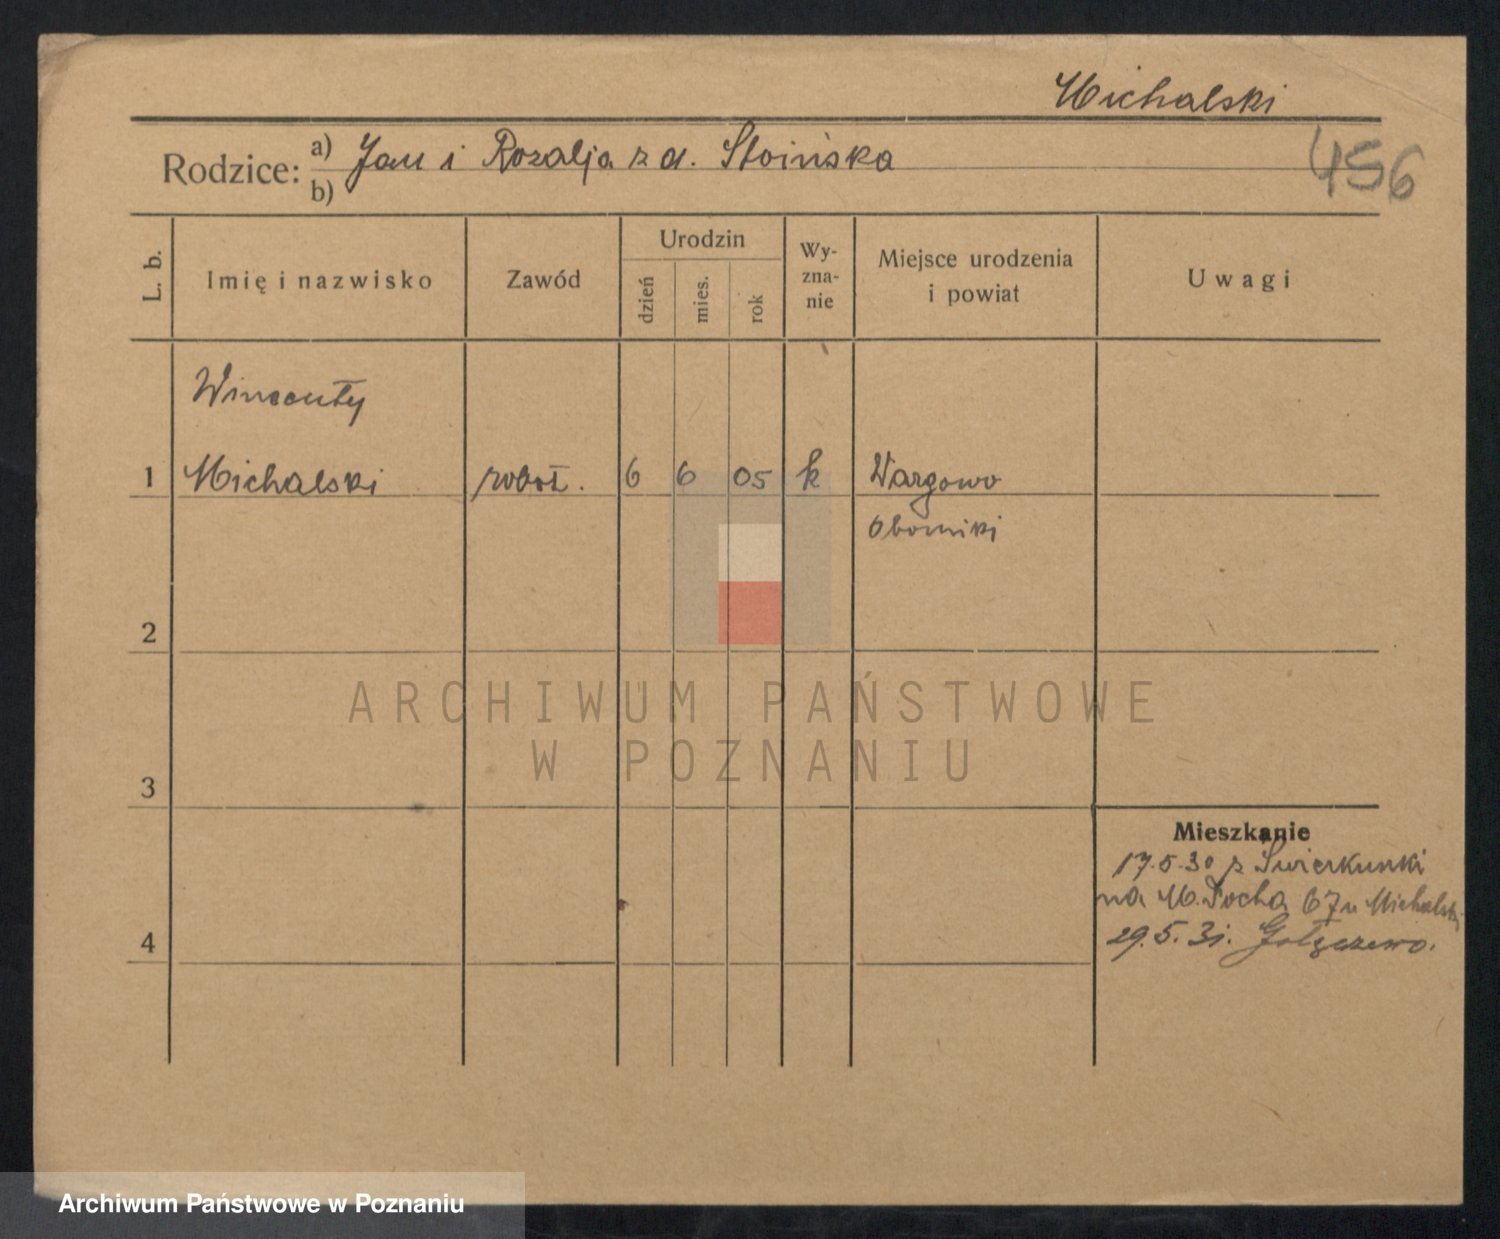 Michalski
456
Rodzice: a) Jan i Rozalja z d. Stoińska
b)
L. b.
Imię i nazwisko
Zawód
Urodzin
dzień
mies.
rok
Wy-
zna-
nie
Miejsce urodzenia
i powiat
Uwagi
Wincenty
1 Michalski robot. 6 6 05 k Wargowo
Oborniki
2
3
4
Mieszkanie
17.5.30 z Świerkówki
na M. Focha 67 u Michalski
29.5.31. Gołęczewo.
ARCHIWUM PAŃSTWOWE
W POZNANIU
Archiwum Państwowe w Poznaniu